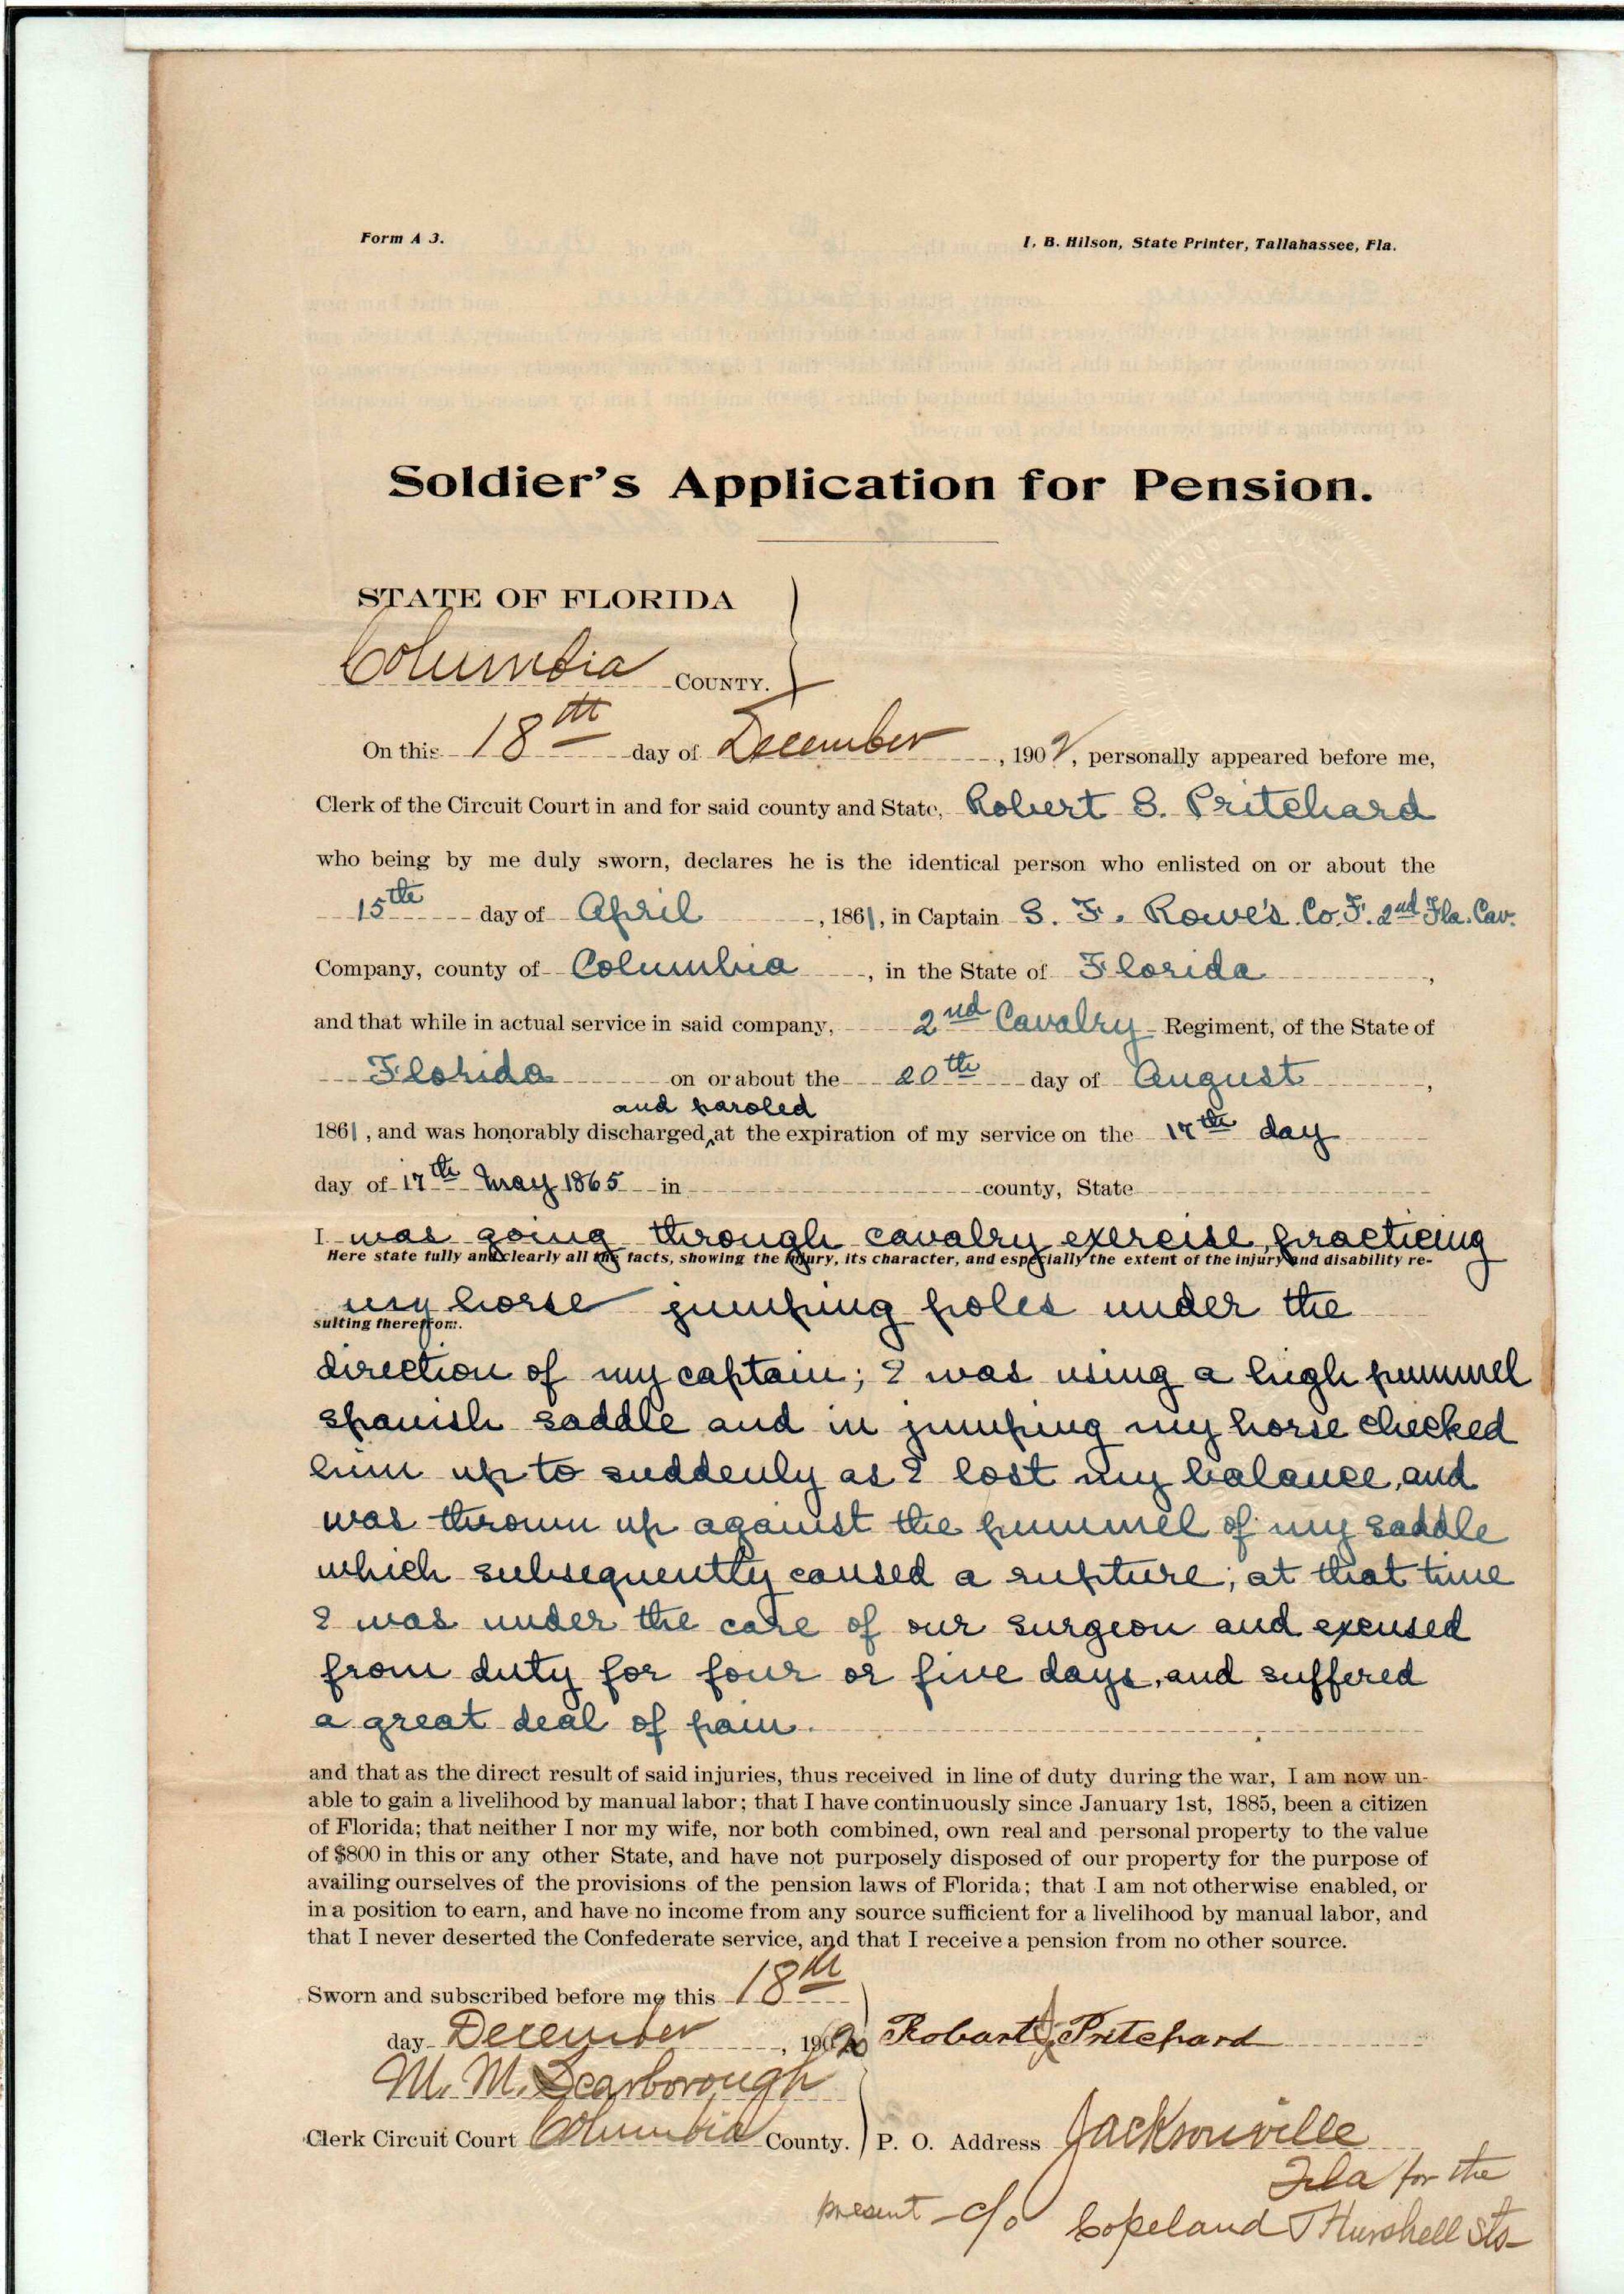 Form A 3.
I. B. Hilson, State Printer, Tallahassee, Fla.
Soldier's Application for Pension.
STATE OF FLORIDA
Columbia COUNTY.
On this 18th day of December, 1902, personally appeared before me,
Clerk of the Circuit Court in and for said county and State, Robert S. Pritchard
who being by me duly sworn, declares he is the identical person who enlisted on or about the
15th day of April, 1861, in Captain S. F. Rowe's Co. F. 2nd Fla. Cav.
Company, county of Columbia, in the State of Florida,
and that while in actual service in said company, 2nd Cavalry Regiment, of the State of
Florida on or about the 20th day of August,
and paroled
1861, and was honorably discharged, at the expiration of my service on the 17th day
day of 17th May 1865 in county, State
I was going through cavalry exercise, practicing
Here state fully and clearly all the facts, showing the injury, its character, and especially the extent of the injury and disability re-
my horse jumping poles under the
sulting therefrom.
direction of my captain; I was using a high pummel
spanish saddle and in jumping my horse checked
him up to suddenly as I lost my balance, and
was thrown up against the pummel of my saddle
which subsequently caused a rupture; at that time
I was under the care of our surgeon and excused
from duty for four or five days, and suffered
a great deal of pain.
and that as the direct result of said injuries, thus received in line of duty during the war, I am now un-
able to gain a livelihood by manual labor; that I have continuously since January 1st, 1885, been a citizen
of Florida; that neither I nor my wife, nor both combined, own real and personal property to the value
of $800 in this or any other State, and have not purposely disposed of our property for the purpose of
availing ourselves of the provisions of the pension laws of Florida; that I am not otherwise enabled, or
in a position to earn, and have no income from any source sufficient for a livelihood by manual labor, and
that I never deserted the Confederate service, and that I receive a pension from no other source.
Sworn and subscribed before me this 18th
day December, 1902 Robart S Pritchard
M. M. Scarborough
Clerk Circuit Court Columbia County. P. O. Address Jacksonville
Fla for the
present - c/o Copeland Sts